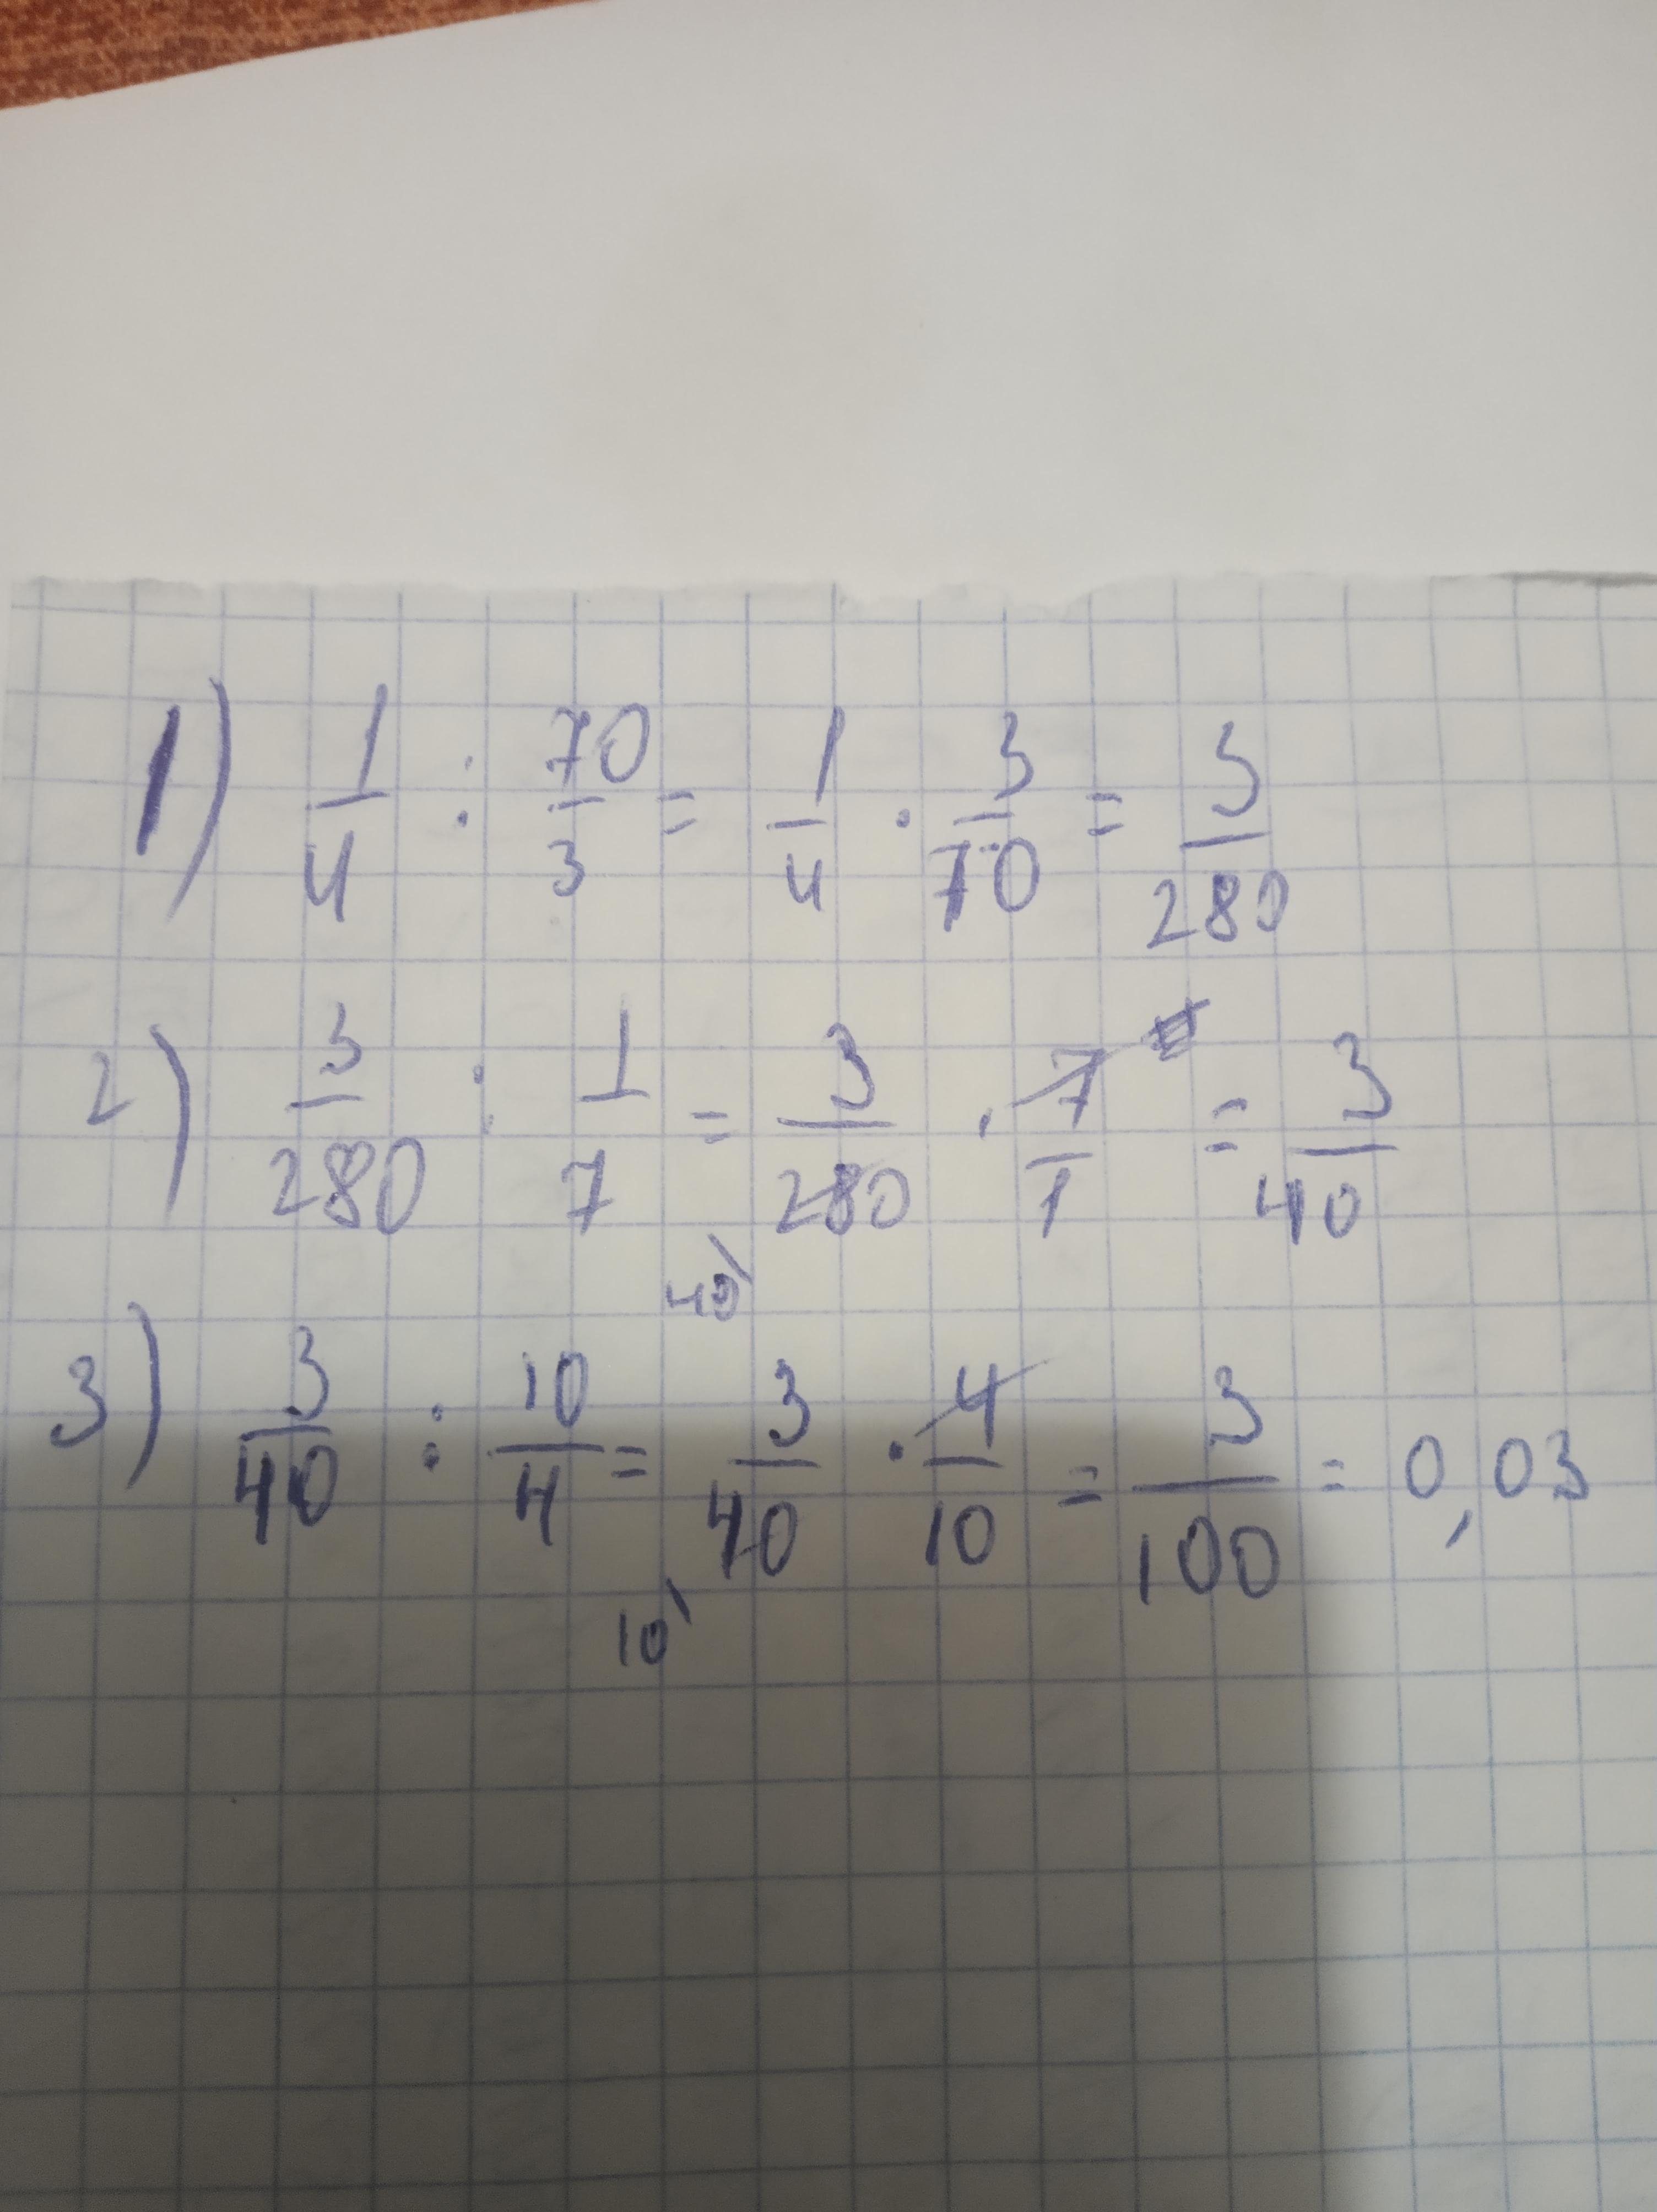 1) 1/4 : 70/3 = 1/4 · 3/70 = 3/280
2) 3/280 : 1/7 = 3/280 · 7/1 = 3/40
40
3) 3/40 : 10/4 = 3/40 · 4/10 = 3/100 = 0,03
10